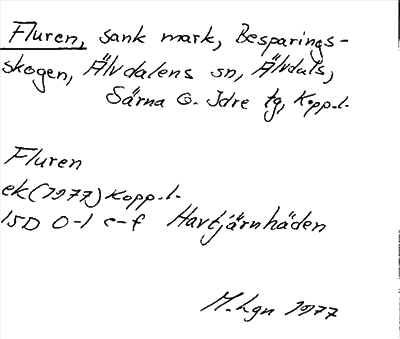 Fluren, sank mark, Besparings-
skogen, Älvdalens sn, Älvdals,
Särna o. Idre tg, Kopp.l.
Fluren
ek (1977) Kopp.l.
15D 0-1 e-f Havtjärnhäden
M. Lgn 1977